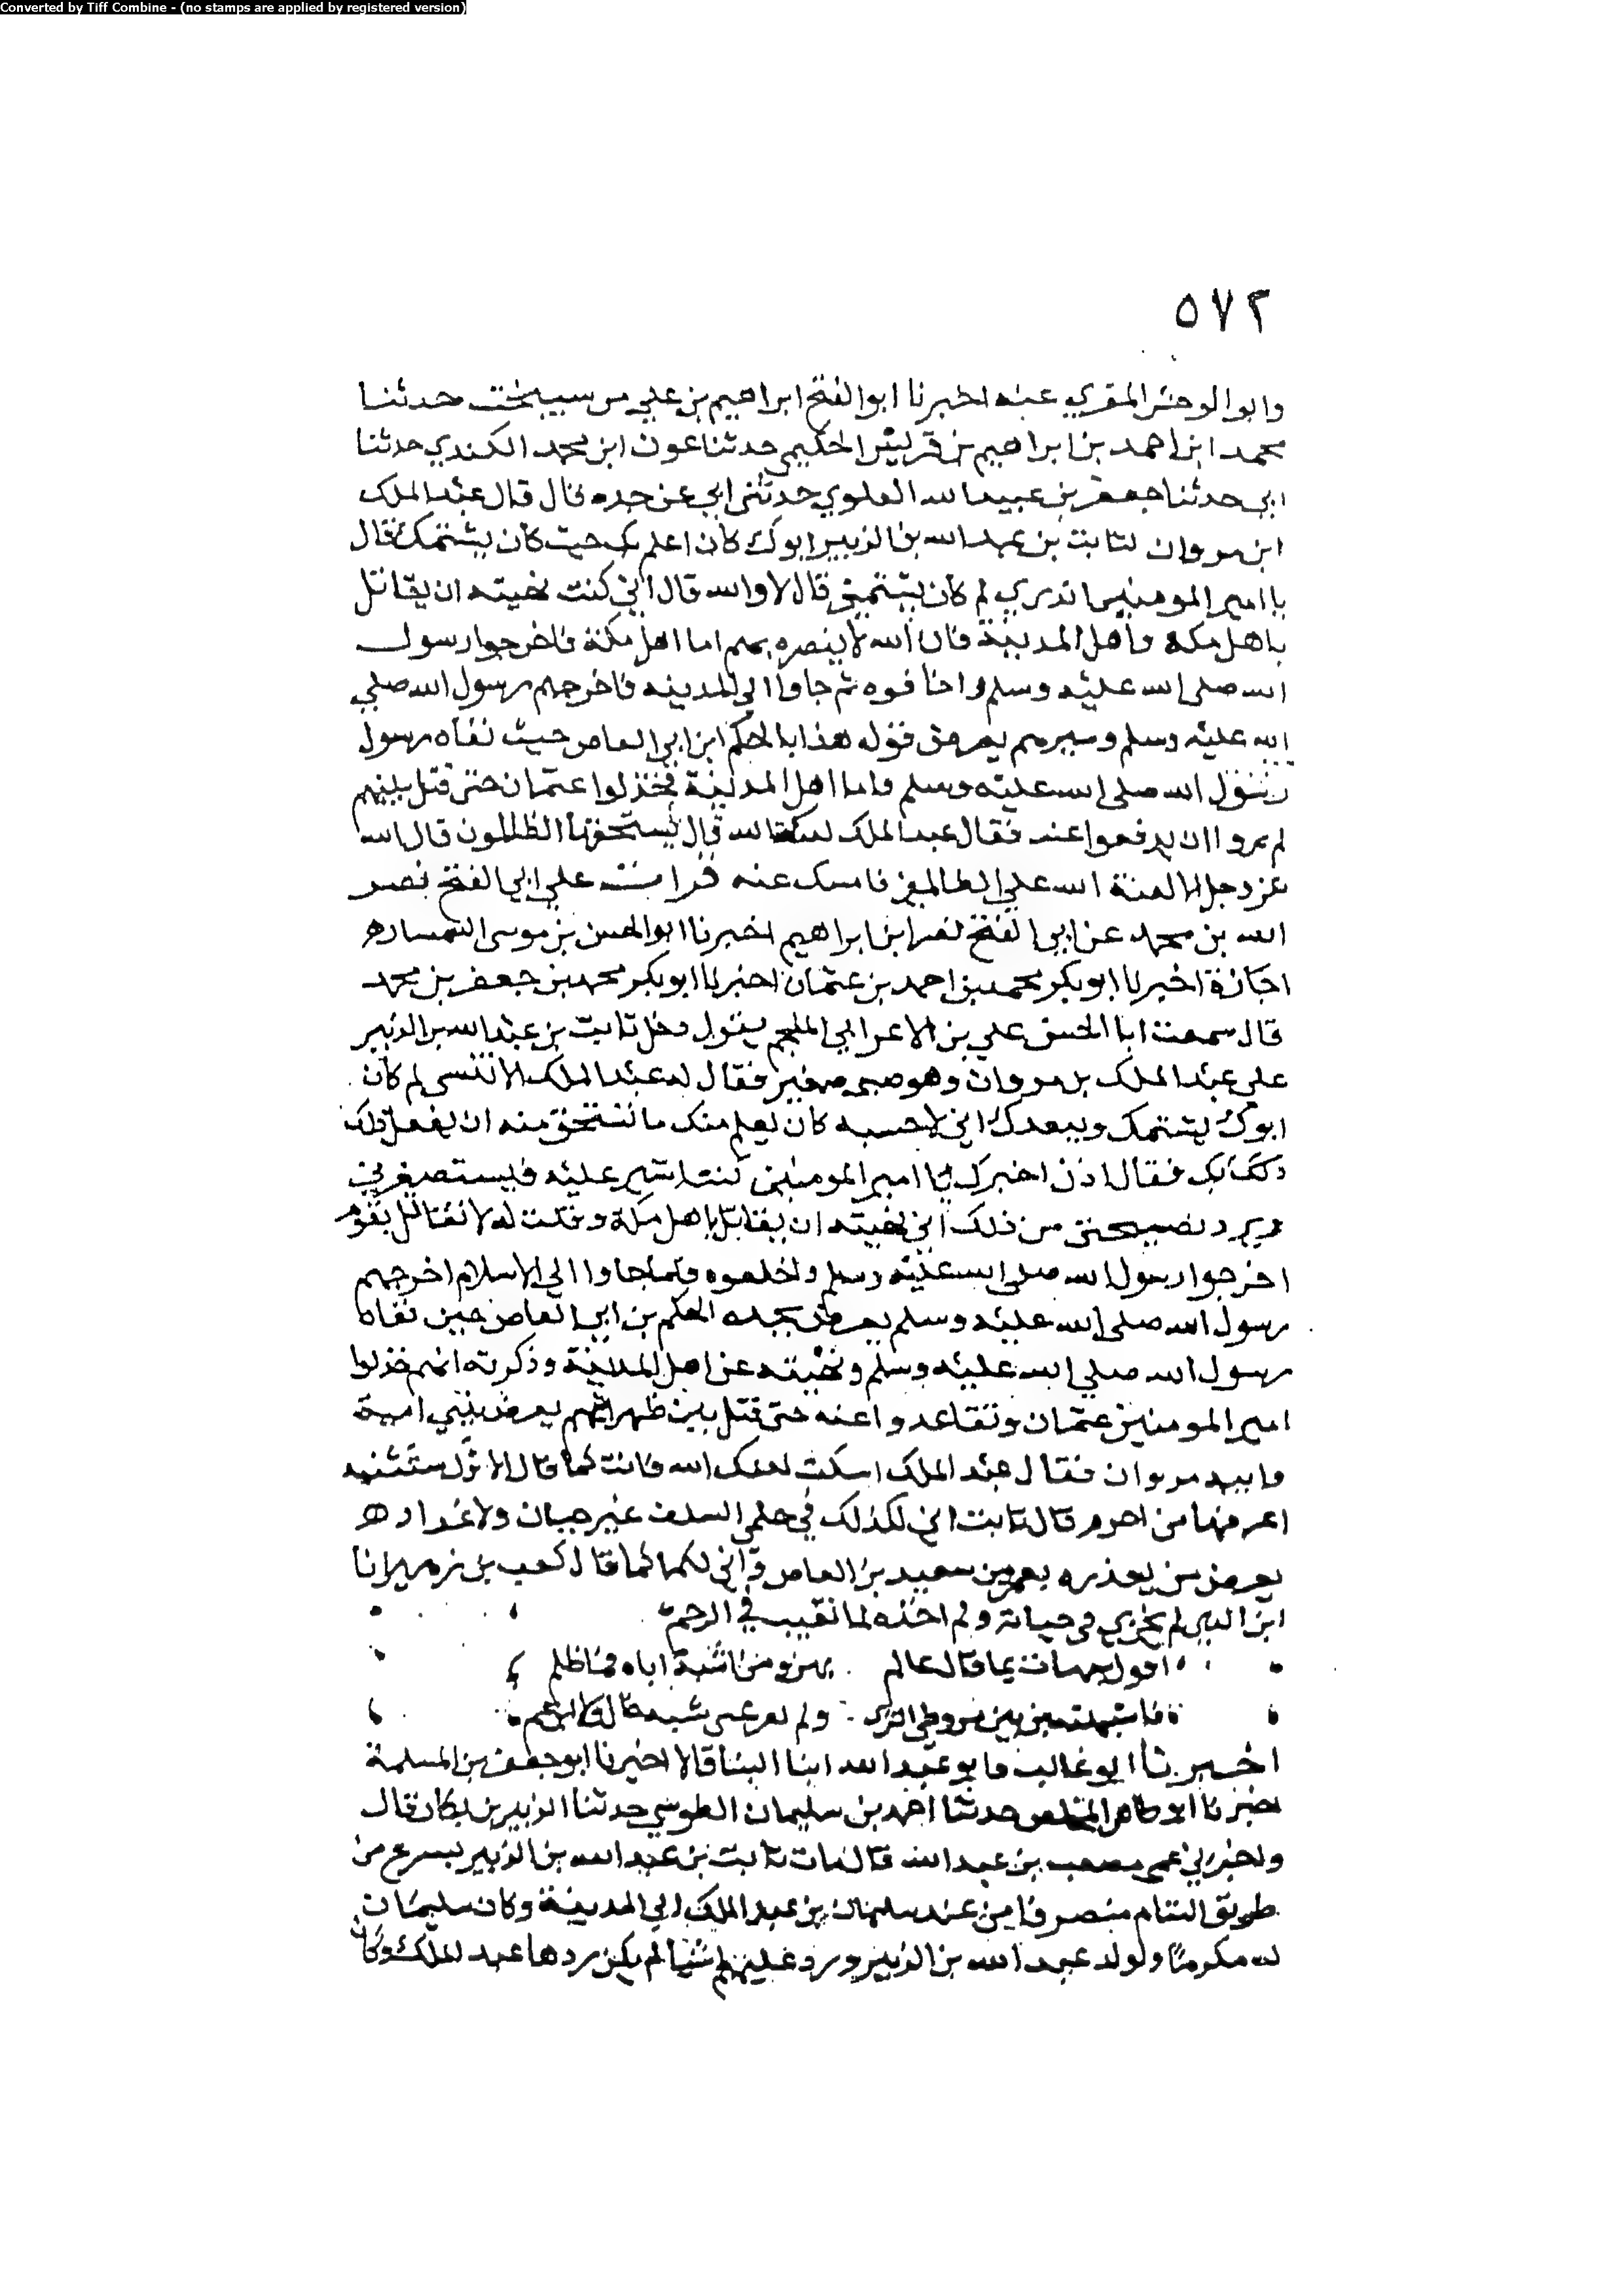 Converted by Tiff Combine - (no stamps are applied by registered version)
٥٧٢
وابوا الوحش المقري عنه اخبرنا ابوا الفتح ابراهيم بن علي من سيبخت حدثنا
محمد ابن احمد بن ابراهيم بن قريش الحكيمي حدثنا عون ابن محمد الكندي حدثنا
ابي حدثنا جعفر بن عبيد الله العلوي حدثني ابي عن جده قال قال عبد الملك
ابن مروان لثابت بن عبد الله بن الزبير ابوك كان اعلم بك حيث كان يشتمك فقال
يا امير المومنين اتدري لم كان يشتمني قال لا والله قال اني كنت نهيته ان يقاتل
باهل مكه واهل المدينة فان الله لا ينصره بهم اما اهل مكة فاخرجوا رسول
الله صلى الله عليه وسلم واخافوه ثم جاوا الي المدينه فاخرجهم رسول الله صلي
الله عليه وسلم وسيرهم يعرض قوله هذا بالحكم ابن ابي العاص حيث نفاه رسول
رسول الله صلى الله عليه وسلم واما اهل المدينة فخذلوا عثمان حتى قتل بينهم
لم يروا ان يدفعوا عنه فقال عبد الملك لعنك الله قال يستحقها الظالمون قال الله
عز وجل الا لعنة الله علي الظالمين فامسك عنه قرات علي ابي الفتح نصر
الله بن محمد عن ابي الفتح نصر ابن ابراهيم اخبرنا ابو الحسن بن موسى السمسار
اجازة اخبرنا ابو بكر محمد بن احمد بن عثمان اخبرنا ابو بكر محمد بن جعفر بن محمد
قال سمعت ابا الحسن علي بن الاعرابي يقول دخل ثابت بن عبد الله بن الزبير
علي عبد الملك بن مروان وهو صبي صغير فقال له عبد الملك الا لم كان
ابوك يشتمك ويبعدك اني لاحسبه كان يعلم منك ما تستحق منه ان يفعل ذلك
ذلك بك فقال اذن اخبرك يا امير المومنين كنت اشير عليه فيستصغرني
ويرد نصيحتي من ذلك اني نهيته ان يقاتل باهل مكة وقلت له لا تقاتل بقوم
اخرجوا رسول الله صلى الله عليه وسلم واخلعوه فلما جاوا الي الاسلام اخرجهم
رسول الله صلى الله عليه وسلم يعرض بجده الحكم بن ابي العاص حين نفاه
رسول الله صلي الله عليه وسلم ونهيته عن اهل المدينة وذكرته انهم خذلوا
امير المومنين عثمان وتقاعدوا عنه حتى قتل بين ظهرانيهم يعرض ببني امية
وابيه مروان فقال عبد الملك اسكت لعنك الله فانت كما قال الاول
من اخزم قال ثابت اني لكذلك في حلمي السلف غير جبان ولا غدار
يعرض من يعذره بعمرو بن سعيد بن العاص واني لكما كما قال كعب بن زهير انا
ابن الذي لم يخزني في حياته ولم اخزه لما تغيب في الرجم
اقول بما قال عالم بهن ومن اشبه اباه فما ظلم
فاشبهته من بين من وطي الثري ولم
اخبرنا ابو غالب وابو عبد الله ابنا البنا قالا اخبرنا ابو جعفر بن المسلمة
اخبرنا ابو طاهر المخلص حدثنا احمد بن سليمان الطوسي حدثنا الزبير بن بكار قال
واخبرني عمي مصعب بن عبد الله قال مات ثابت بن عبد الله بن الزبير بسرع من
طريق الشام منصرفا من عند سليمان بن عبد الملك الي المدينة وكان سليمان
له مكرما ولولد عبد الله بن الزبير ورد عليهم اشيا لم يكن ردها عبد الملك وكان